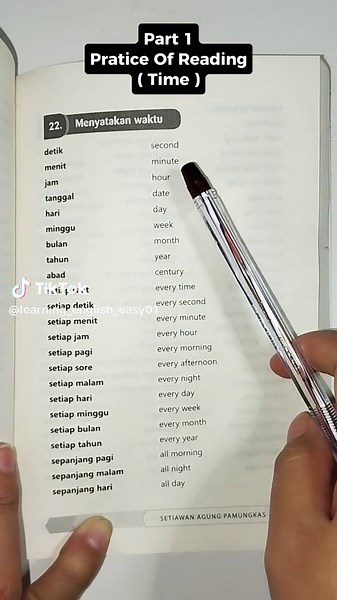 Part 1
Pratice Of Reading
( Time )
22. Menyatakan waktu
detik second
menit minute
jam hour
tanggal date
hari day
minggu week
bulan month
tahun year
abad century
setiap saat every time
setiap detik every second
setiap menit every minute
setiap jam every hour
setiap pagi every morning
setiap sore every afternoon
setiap malam every night
setiap hari every day
setiap minggu every week
setiap bulan every month
setiap tahun every year
sepanjang pagi all morning
sepanjang malam all night
sepanjang hari all day
TikTok
@learning_english_easy01
SETIAWAN AGUNG PAMUNGKAS